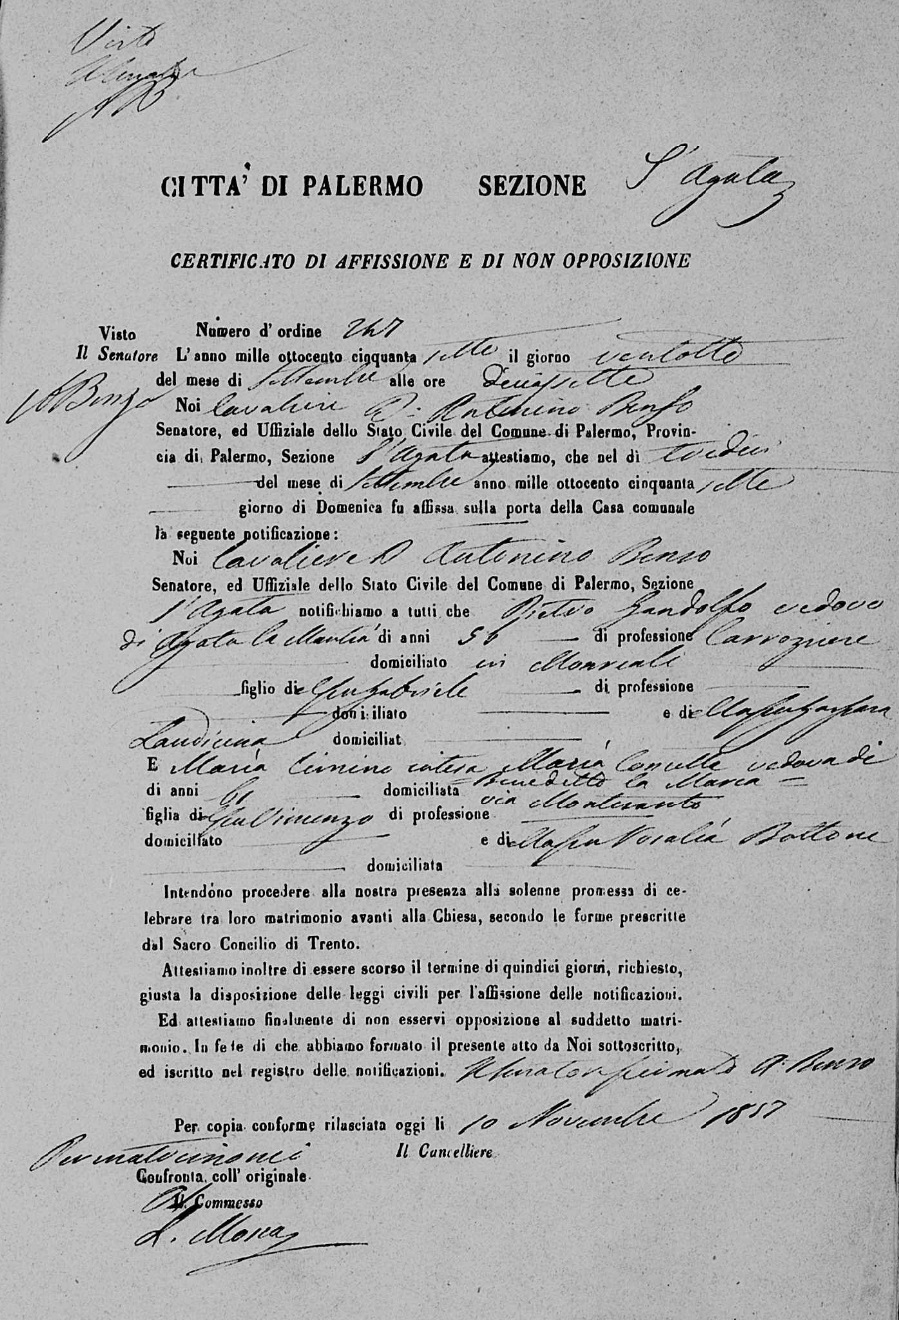 Visto
Il Senatore
A B
CITTA' DI PALERMO SEZIONE S. Agata
CERTIFICATO DI AFFISSIONE E DI NON OPPOSIZIONE
Visto
Il Senatore
A Benso
Numero d' ordine 247
L'anno mille ottocento cinquanta sette il giorno ventotto
del mese di Settembre alle ore diciassette
Noi Cavaliere D. Antonino Benso
Senatore, ed Uffiziale dello Stato Civile del Comune di Palermo, Provin-
cia di Palermo, Sezione S. Agata attestiamo, che nel dì tredici
del mese di Settembre anno mille ottocento cinquanta sette
giorno di Domenica fu affissa sulla porta della Casa comunale
la seguente notificazione:
Noi Cavaliere D Antonino Benso
Senatore, ed Uffiziale dello Stato Civile del Comune di Palermo, Sezione
S. Agata notifichiamo a tutti che Pietro Gandolfo vedovo
di Agata la Mantia di anni 56 di professione Carrozziere
domiciliato in Monreale
figlio di Gabriele di professione
domiciliato e di
Landicina domiciliat
E Maria Cimino intesa Maria vedova di
Benedetto la Marca
di anni domiciliata via Montesanto
figlia di Vincenzo di professione
domiciliato e di Rosalia Bottone
domiciliata
Intendono procedere alla nostra presenza alla solenne promessa di ce-
lebrare tra loro matrimonio avanti alla Chiesa, secondo le forme prescritte
dal Sacro Concilio di Trento.
Attestiamo inoltre di essere scorso il termine di quindici giorni, richiesto,
giusta la disposizione delle leggi civili per l'affissione delle notificazioni.
Ed attestiamo finalmente di non esservi opposizione al suddetto matri-
monio. In fede di che abbiamo formato il presente atto da Noi sottoscritto,
ed iscritto nel registro delle notificazioni. Il Senatore firmato A. Benso
Per copia conforme rilasciata oggi li 10 Novembre 1857
Per matrimonio
Il Cancelliere
Confronta coll' originale
Il Commesso
L. Mosca